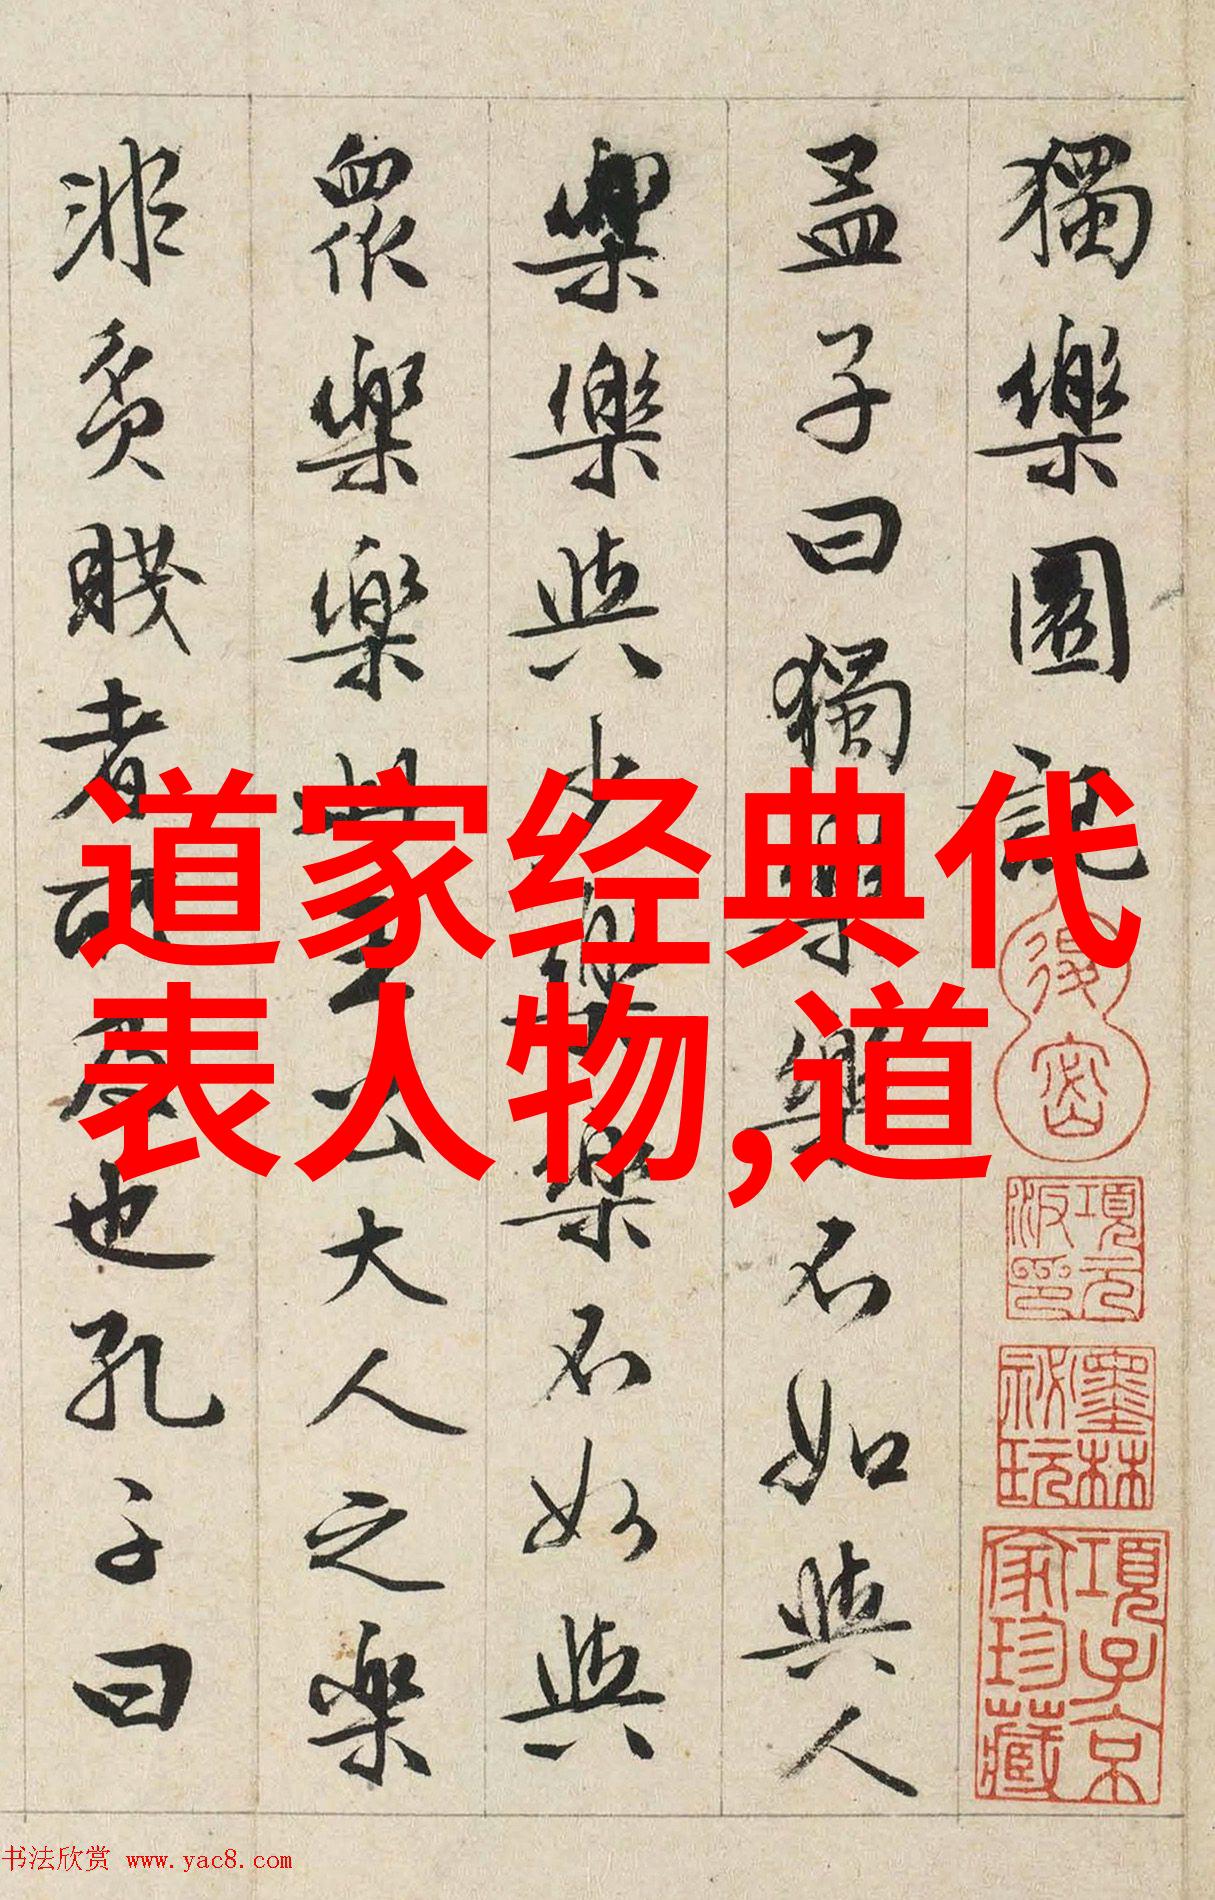 獨樂園記
孟子曰獨樂樂不如與人
樂樂與少樂樂不如與
眾樂樂此王公大人之樂
非貧賤者所及也孔子曰
道家经典代
表人物,道
項元汴印
墨林祕玩
項子京家珍藏
书法欣赏 www.yac8.com